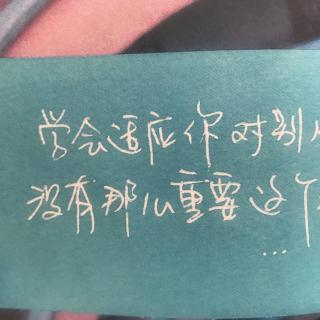 学会适应你对别
没有那么重要这个
...